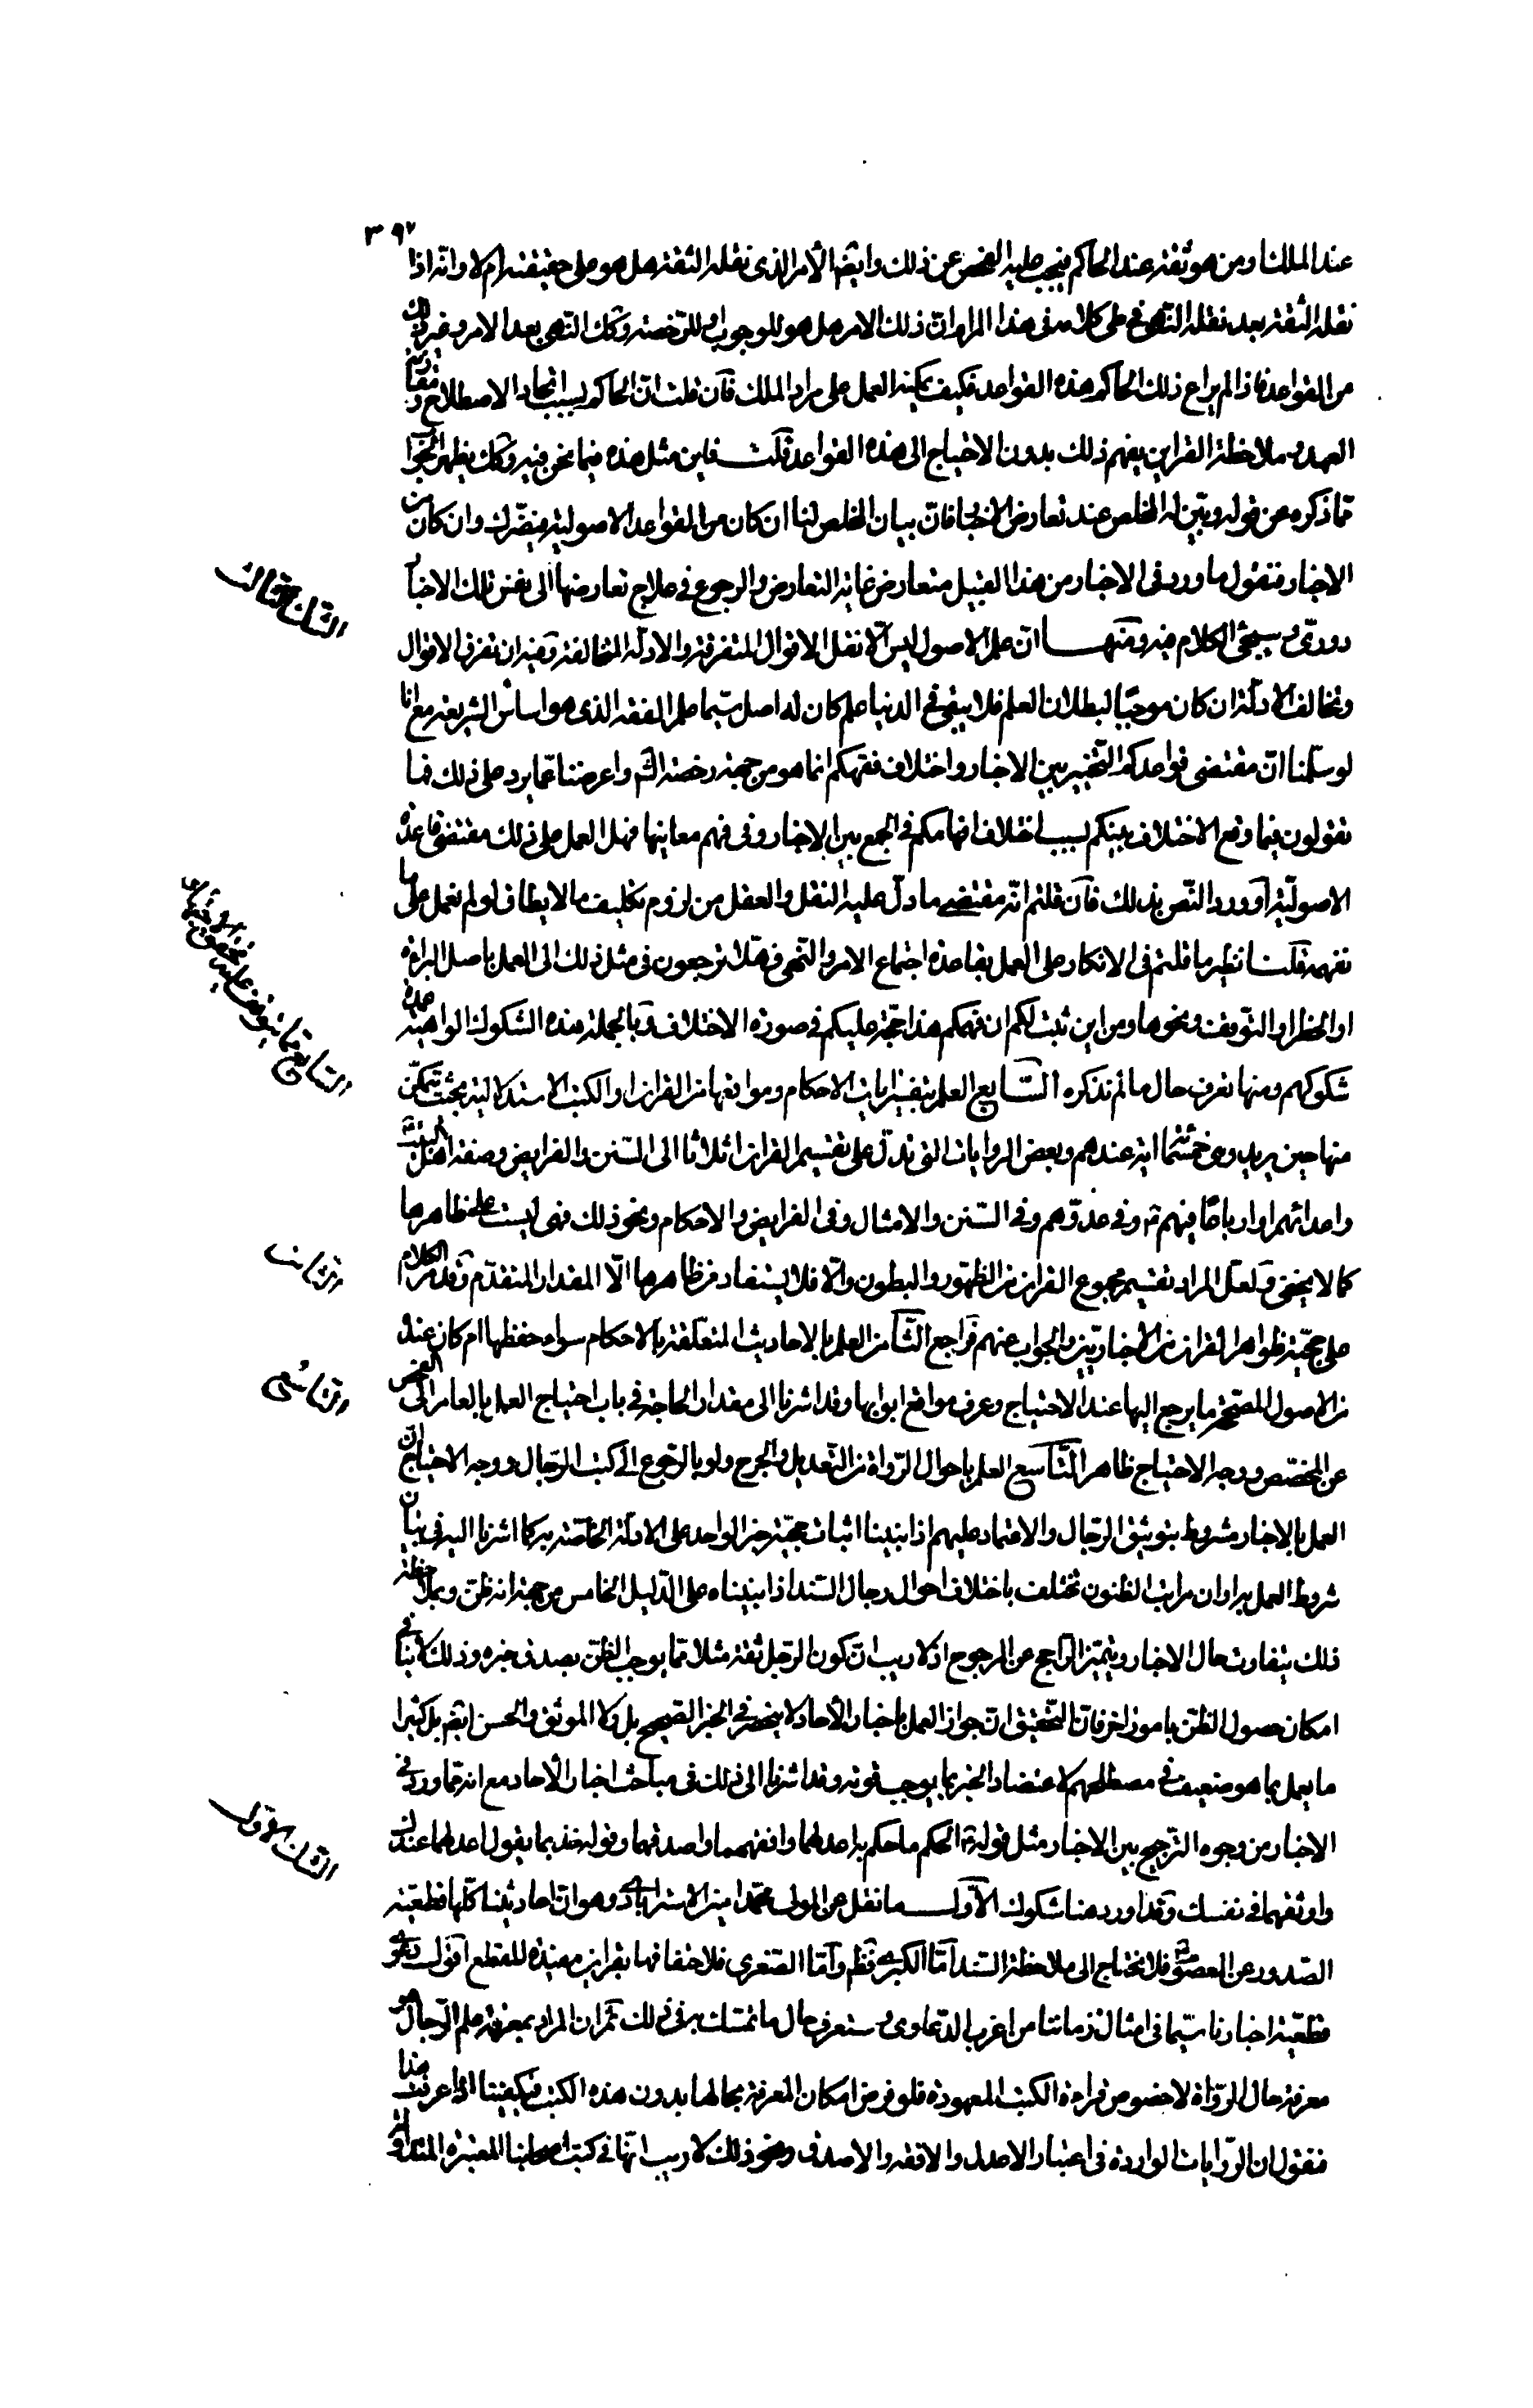 ٣٩٧
عند الملك او من هو ثقة عند الحاكم فيجب عليه الفحص عن ذلك وايضا الأمر الذى نقله الثقة هل هو على حقيقته ام لا وانّه اذا
نقله الثقة بعد نقله النهى فى كلامه فى هذا المرام انّ ذلك الامر هل هو للوجوب او للرّخصة وكك النهى بعد الامر وغير ذلك
من القواعد فاذا لم يراع ذلك الحاكم هذه القواعد فكيف يمكنه العمل على مراد الملك فان قلت انّ الحاكم بسبب اتحاد الاصطلاح وقرب
العهد وملاحظة القراين يفهم ذلك بدون الاحتياج الى هذه القواعد قلت فاين مثل هذه فيما نحن فيه وكك يظهر الجواب
عما ذكره من قوله ويبيّن له المخلص عند تعارض الاخبار فانّ بيان المخلص لنا ان كان من القواعد الاصولية فيضرّك وان كان من
الاخبار فنقول ما ورد فى الاخبار من هذا القبيل متعارض غاية التعارض والرجوع فى علاج تعارضها الى نفس تلك الاخبار
دورىّ وسيجئ الكلام فيه ومنها انّ علم الاصول ليس الّا نقل الاقوال المتفرقة والادلّة المتخالفة وفيه ان تفرق الاقوال
وتخالف الادلّة ان كان موجبا لبطلان العلم فلا يبقى فى الدنيا علم كان له اصل سيّما علم الفقه الذى هو اساس الشريعة مع انا
لو سلّمنا انّ مقتضى قواعدكم التخيير بين الاخبار واختلاف فقهكم انما هو من جهة رخصة الشّ واعرضنا عمّا يرد على ذلك فما
تقولون فيما وقع الاختلاف بينكم بسبب اختلاف افهامكم فى الجمع بين الاخبار وفى فهم معانيها فهل العمل على ذلك مقتضى قاعدة
الاصوليّة او ورد النّص بذلك فان قلتم انّه مقتضى ما دلّ عليه النقل والعقل من لزوم تكليف ما لا يطاق لو لم نعمل على ما
نفهمه قلنا نظير ما قلتم فى الانكار على العمل بقاعدة اجتماع الامر والنهى فهلّا ترجعون فى مثل ذلك الى العمل باصل البراءة
او الحظر او التوقف ونحوها ومن اين ثبت لكم ان فهمكم هذا حجّة عليكم فى صورة الاختلاف وبالجملة هذه الشكوك الواهية عمدة
شكوكهم ومنها تعرف حال ما لم نذكره السّابع العلم بتفسير ايات الاحكام ومواقعها من القران او الكتب الاستدلالية بحيث يتمكّن
منها حين يريد وهى خمسمائة اية عندهم وبعض الروايات التى تدلّ على تقسيم القران اثلاثا الى السّنن والفرايض وصفة اهل البيت
واعدائهم او ارباعا فيهم وفى عدوّهم وفى السّنن والامثال وفى الفرايض والاحكام ونحو ذلك فهى ليست على ظاهرها
كما لا يخفى ولعلّ المراد تقسيم مجموع القران من الظهور والبطون والّا فلا يستفاد من ظاهرها الّا المقدار المتقدّم وقد مر الكلام
على حجيّة ظواهر القران من الاخباريّين والجواب عنهم فراجع الثّامن العلم بالاحاديث المتعلقة بالاحكام سواء حفظها ام كان عنده
من الاصول المصحّحة ما يرجع اليها عند الاحتياج وعرف مواقع ابوابها وقد اشرنا الى مقدار الحاجة فى باب احتياج العمل بالعام الى الفحص
عن المخصّص ووجه الاحتياج ظاهر التّاسع العلم باحوال الرّواة من التّعديل والجرح ولو بالرّجوع الى كتب الرّجال ووجه الاحتياج انّ
العمل بالاخبار مشروط بتوثيق الرّجال والاعتماد عليهم اذا بنينا اثبات حجيّة خبر الواحد على الادلّة الخاصّة به كما اشرنا اليه فى بيان
شروط العمل به او ان مراتب الظنون تختلف باختلاف احوال رجال السّند اذا بنيناه على الدّليل الخامس من جهة انه ظنّ وبملاحظة
ذلك يتفاوت حال الاخبار ويتميّز الرّاجح عن المرجوح اذ لا ريب انّ كون الرّجل ثقة مثلا ممّا يوجب الظنّ بصدق خبره وذلك لا ينافى
امكان حصول الظنّ بامور اخر فانّ التّحقيق انّ جواز العمل باخبار الأحاد لا ينحصر فى الخبر الصّحيح بل ولا الموثق والحسن ايضا بل كثيرا
ما يعمل بما هو ضعيف فى مصطلحهم لاعتضاد الخبر بما يوجب قوته وقد اشرنا الى ذلك فى مباحث اخبار الأحاد مع انه ممّا ورد فى
الاخبار من وجوه التّرجيح بين الاخبار مثل قوله الحكم ما حكم به اعدلهما وافقههما واصدقهما وقوله خذ بما يقول اعدلهما عندك
واوثقهما فى نفسك وقد اورد هنا شكوك الأوّل ما نقل عن المولى محمّد امين الاسترابادى وهو انّ احاديثنا كلّها قطعيّة
الصّدور عن المعصوم فلا نحتاج الى ملاحظة السّند امّا الكبرى فظّ وامّا الصّغرى فلاحتفافها بقراين مفيدة للقطع اقول دعوى
قطعيّة اخبارنا سيّما فى امثال زماننا من اغرب الدّعاوى وستعرف حال ما تمسّك به فى ذلك ثم ان المراد بمعرفة علم الرّجال هو
معرفة حال الرّواة لا خصوص قراءة الكتب المعهودة فلو فرض امكان المعرفة بحالها بدون هذه الكتب فيكفينا اذا عرفت هذا
فنقول ان الرّوايات الواردة فى اعتبار الاعدل والافقه والاصدق ونحو ذلك لا ريب انّها فى كتب اصحابنا المعتبرة المتداولة
الثامن
التاسع